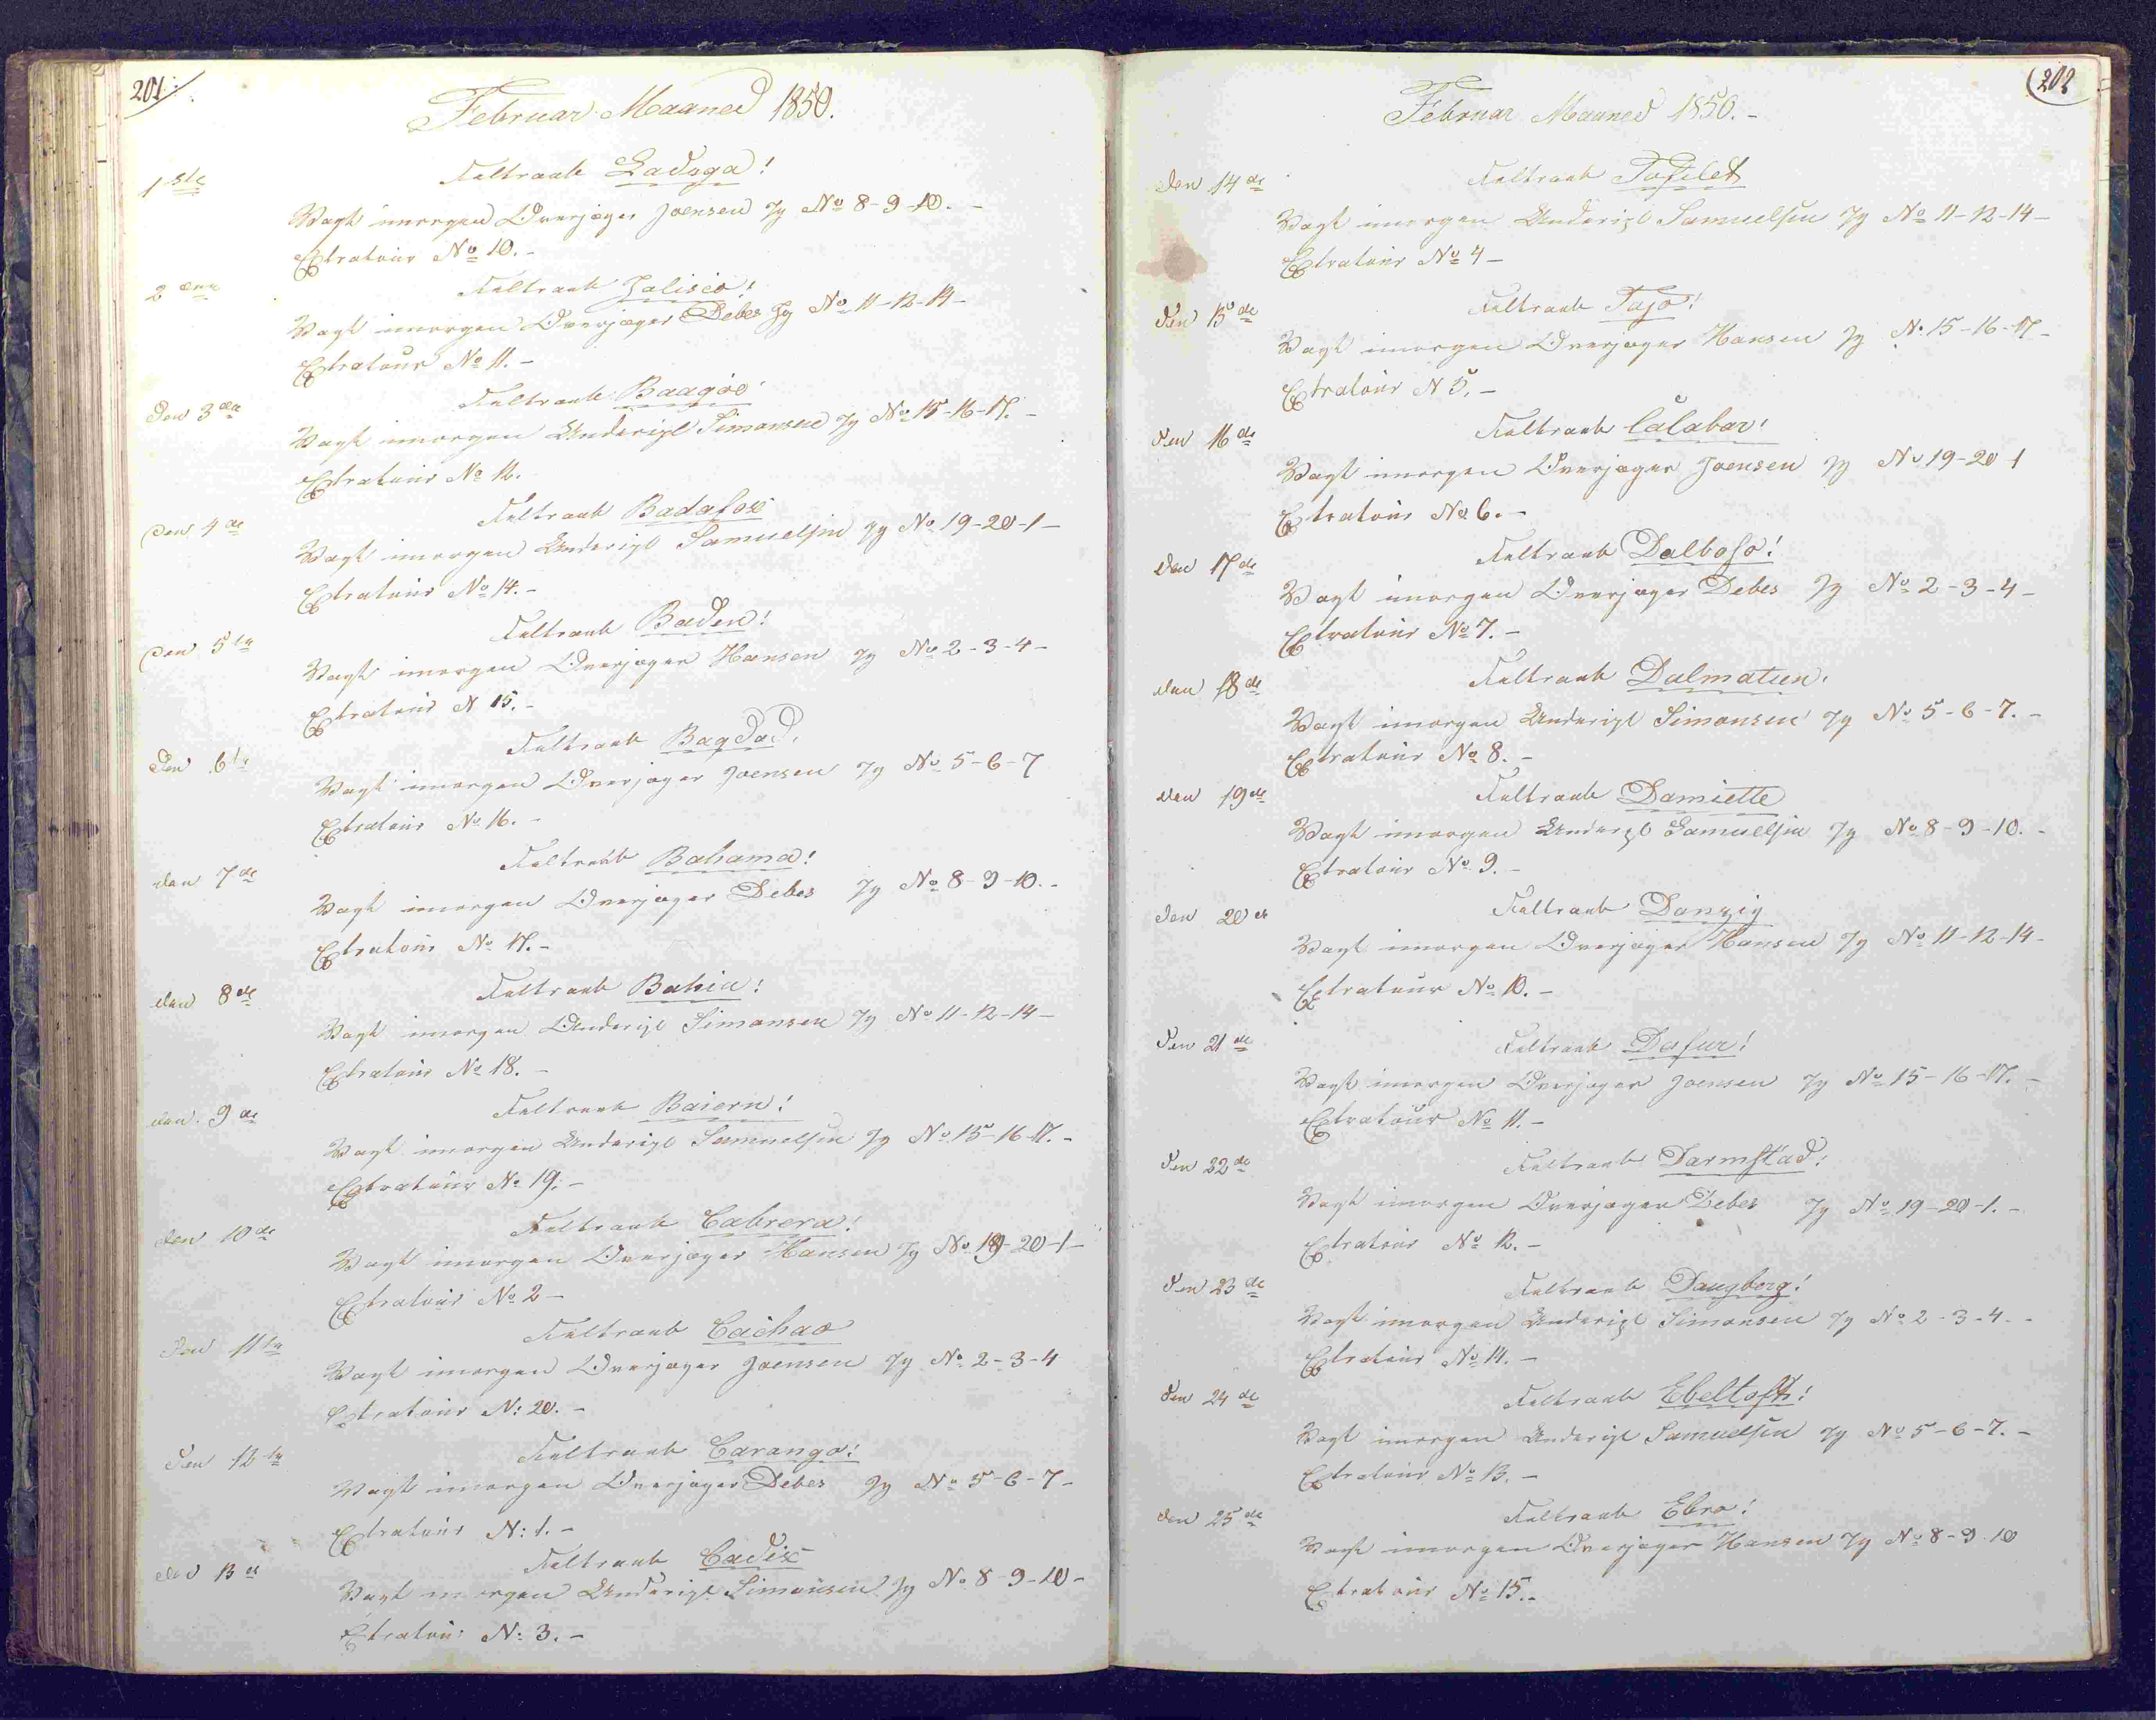 201
Februar Maaned 1850.
1ste Feltraab Ladoga!
Vagt imorgen Overjæger Joensen Jg No 8-9-10. -
Extratour No 10. -
2den Feltraab Jalisco!
Vagt imorgen Overjæger Debes Jg No 11-12-14-
Extratour No 11. -
Den 3die Feltraab Baagöe!
Vagt imorgen Underigl Simonsen Jg No 15-16-17. -
Extratour No 12.
Den 4de Feltraab Badafox
Vagt imorgen Underigl Samuelsen Jg No 19-20-1-
Extratour No 14. -
Den 5te Feltraab Baden!
Vagt imorgen Overjæger Hansen Jg No 2-3-4-
Extratour N 15. -
Den 6te Feltraab Bagdad.
Vagt imorgen Overjæger Joensen Jg No 5-6-7
Extratour No 16. -
den 7de Feltraab Bahama!
Vagt imorgen Overjæger Debes Jg No 8-9-10. -
Extratour No 17. -
den 8de Feltraab Bahia!
Vagt imorgen Underigl Simonsen Jg No 11-12-14-
Extratour No 18. -
den 9de Feltraab Baiern!
Vagt imorgen Underigl Samuelsen Jg No 15-16-17. -
Extratour No 19. -
den 10de Feltraab Cabrera!
Vagt imorgen Overjæger Hansen Jg No 19-20-1-
Extratour No 2-
Den 11te Feltraab Cachao
Vagt imorgen Overjæger Joensen Jg No 2-3-4
Extratour N: 20. -
Den 12te Feltraab Caranga!
Vagt imorgen Overjæger Debes Jg No 5-6-7-
Extratour N: 1. -
den 13de Feltraab Cadix
Vagt imorgen Underigl Simonsen Jg No 8-9-10-
Extratour N: 3. -
202
Februar Maaned 1850. -
Den 14de Feltraab Tafilet
Vagt imorgen Underigl Samuelsen Jg No 11-12-14-
Extratour No 4-
Den 15de Feltraab Tajo!
Vagt imorgen Overjæger Hansen Jg N. 15-16-17-
Extratour N 5. -
Den 16de Feltraab Calabar!
Vagt imorgen Overjæger Joensen Jg No 19-20-1
Extratour No 6. -
Den 17de Feltraab Dalboso!
Vagt imorgen Overjæger Debes Jg No 2-3-4-
Extratour No 7. -
den 18de Feltraab Dalmatien.
Vagt imorgen Underigl Simonsen Jg No 5-6-7. -
Extratour No 8. -
den 19de Feltraab Damiette
Vagt imorgen Underigl Samuelsen Jg No 8-9-10. -
Extratour No 9. -
Den 20de Feltraab Danzig
Vagt imorgen Overjæger Hansen Jg No 11-12-14-
Extratour No 10. -
Den 21de Feltraab Dafur!
Vagt imorgen Overjæger Joensen Jg No 15-16-17. -
Extratour No 11. -
Den 22de Feltraab Darmstad!
Vagt imorgen Overjæger Debes Jg No 19-20-1. -
Extratour No 12. -
Den 23de Feltraab Daugberg!
Vagt imorgen Underigl Simonsen Jg No 2-3-4. -
Extratour No 14. -
Den 24de Feltraab Ebeltoft!
Vagt imorgen Underigl Samuelsen Jg No 5-6-7. -
Extratour No 13. -
den 25de Feltraab Ebro!
Vagt imorgen Overjæger Hansen Jg No 8-9-10
Extratour No 15. -